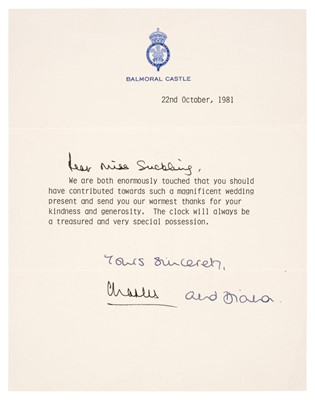 BALMORAL CASTLE
22nd October, 1981
Dear Miss Suckling,
We are both enormously touched that you should
have contributed towards such a magnificent wedding
present and send you our warmest thanks for your
kindness and generosity. The clock will always be
a treasured and very special possession.
Yours sincerely,
Charles and Diana.